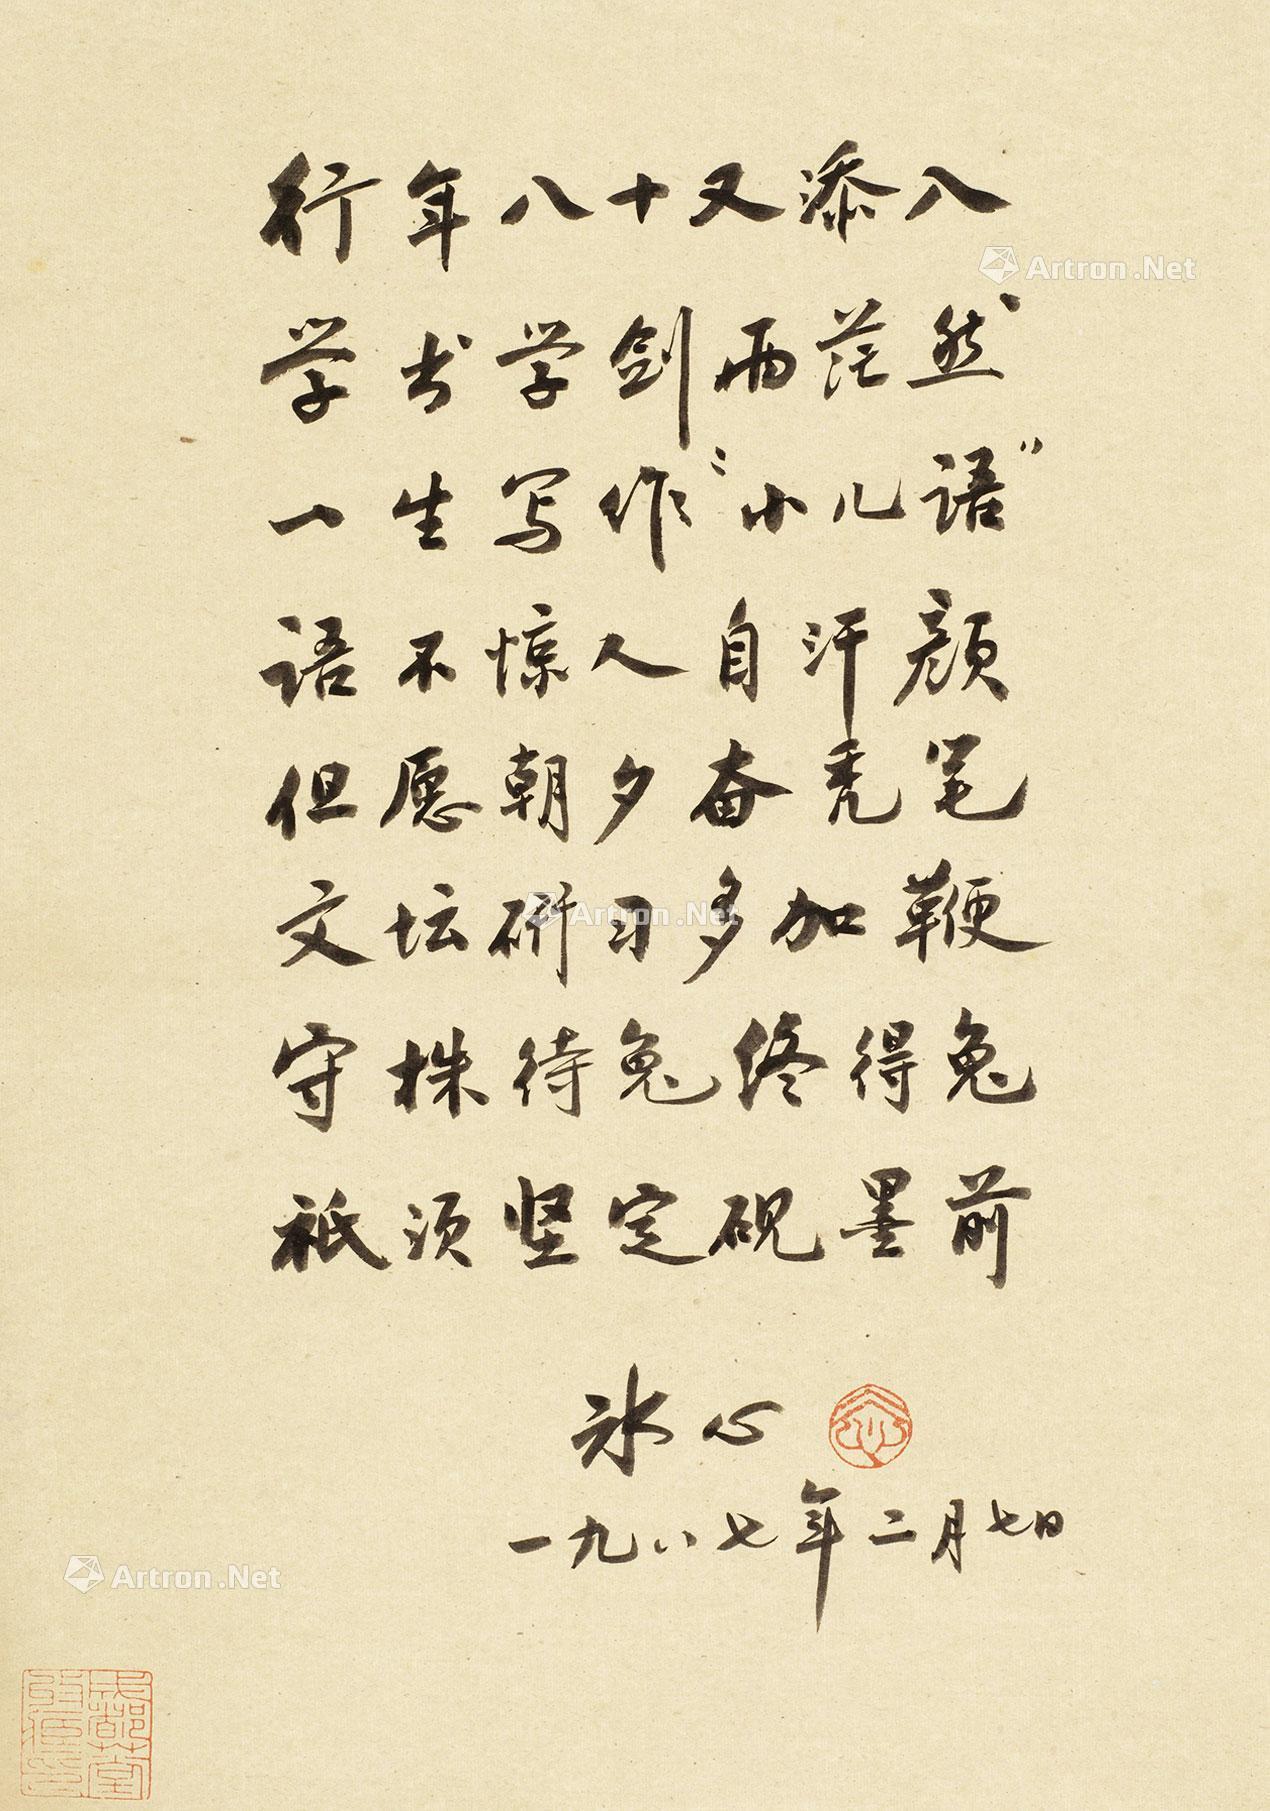 行年八十又添八
学书学剑两茫然
一生写作“小儿语”
语不惊人自汗颜
但愿朝夕奋秃笔
文坛研习多加鞭
守株待兔终得兔
祇须坚定砚墨前
冰心
一九八七年二月七日
Artron.Net
Artron.Net
Artron.Net